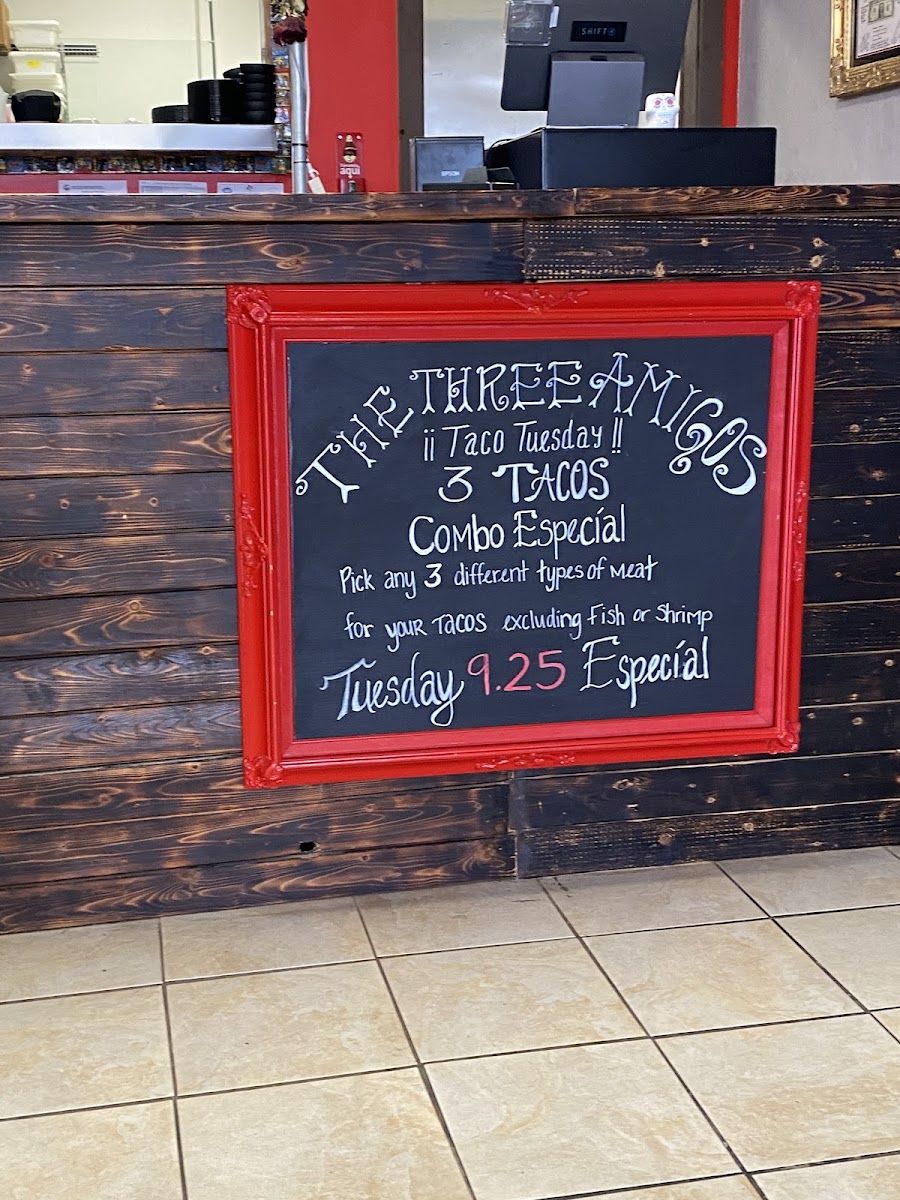 SHIFT4
aqui
EPSON
THE THREE AMIGOS
¡¡ Taco Tuesday !!
3 TACOS
Combo Especíal
Pick any 3 different types of Meat
for your Tacos excluding Fish or Shrimp
Tuesday 9.25 Especíal